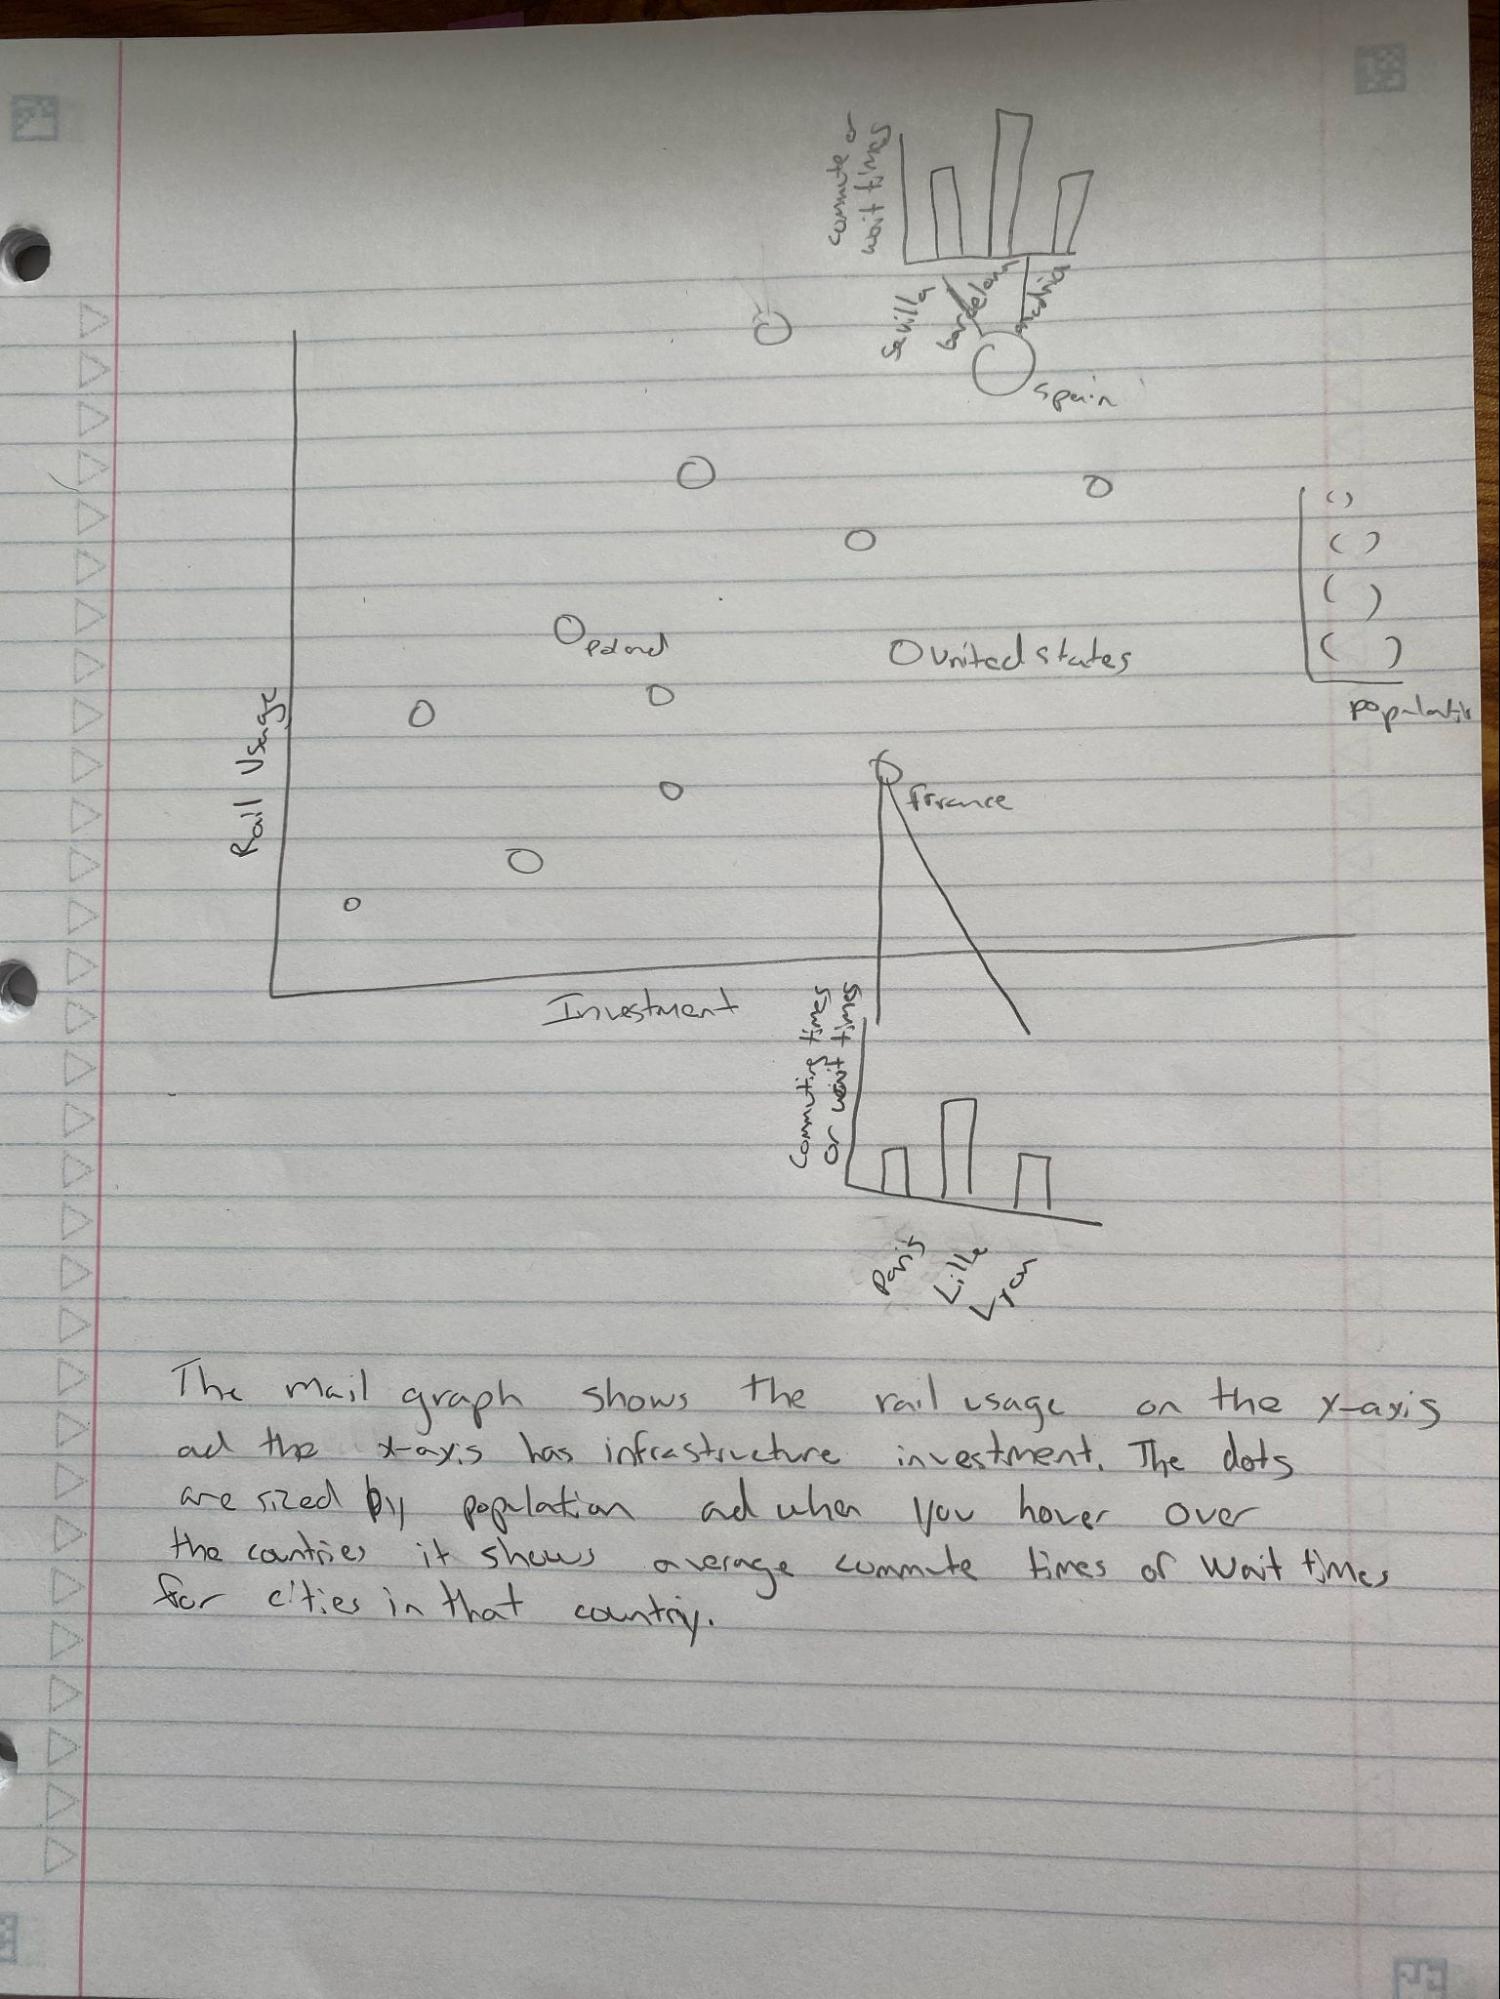 commute or
wait times
Sevilla
barcelona
madrid
spain
poland
United states
population
Rail Usage
france
Investment
Commuting times
or wait times
Paris
Lille
Lyon
The mail graph shows the rail usage on the y-axis
ad the x-axis has infrastructure investment. The dots
are sized by population ad when you hover over
the countries it shows average commute times or wait times
for cities in that country.